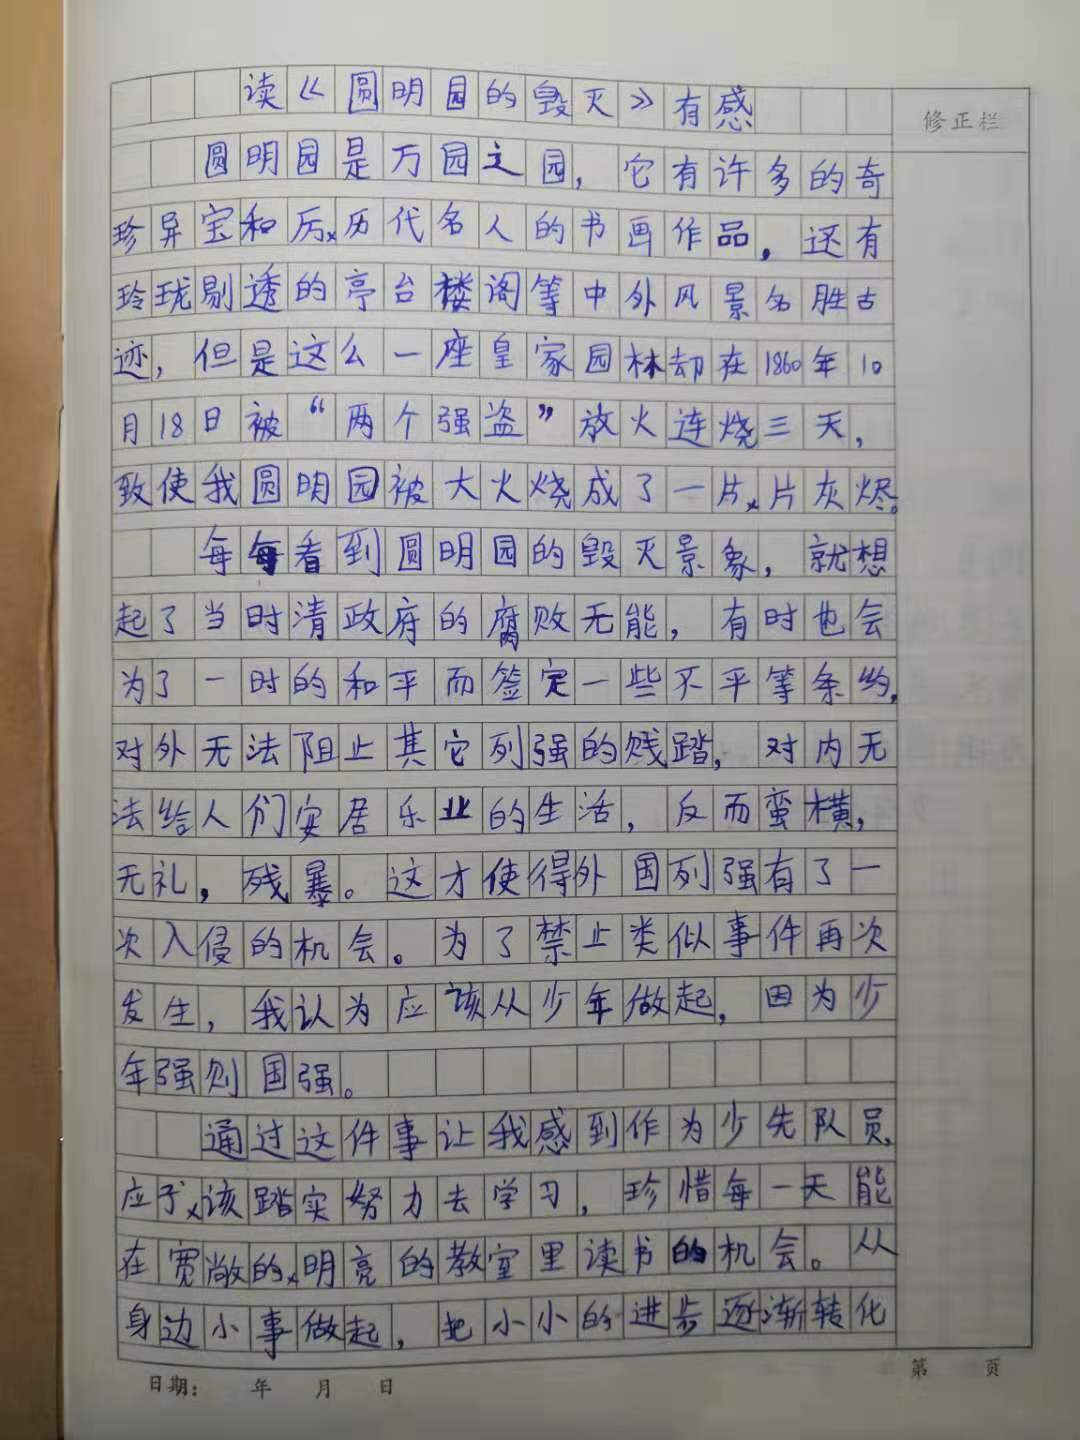 读《圆明园的毁灭》有感
修正栏
圆明园是万园之园，它有许多的奇
珍异宝和历代名人的书画作品，还有
玲珑剔透的亭台楼阁等中外风景名胜古
迹，但是这么一座皇家园林却在1860年10
月18日被“两个强盗”放火连烧三天，
致使我圆明园被大火烧成了一片片灰烬。
每每看到圆明园的毁灭景象，就想
起了当时清政府的腐败无能，有时也会
为了一时的和平而签定一些不平等条约，
对外无法阻止其它列强的贱踏，对内无
法给人们安居乐业的生活，反而蛮横，
无礼，残暴。这才使得外国列强有了一
次入侵的机会。为了禁止类似事件再次
发生，我认为应该从少年做起，因为少
年强则国强。
通过这件事让我感到作为少先队员，
应该踏实努力去学习，珍惜每一天能
在宽敞的明亮的教室里读书的机会。从
身边小事做起，把小小的进步逐渐转化
日期： 年 月 日
第 页